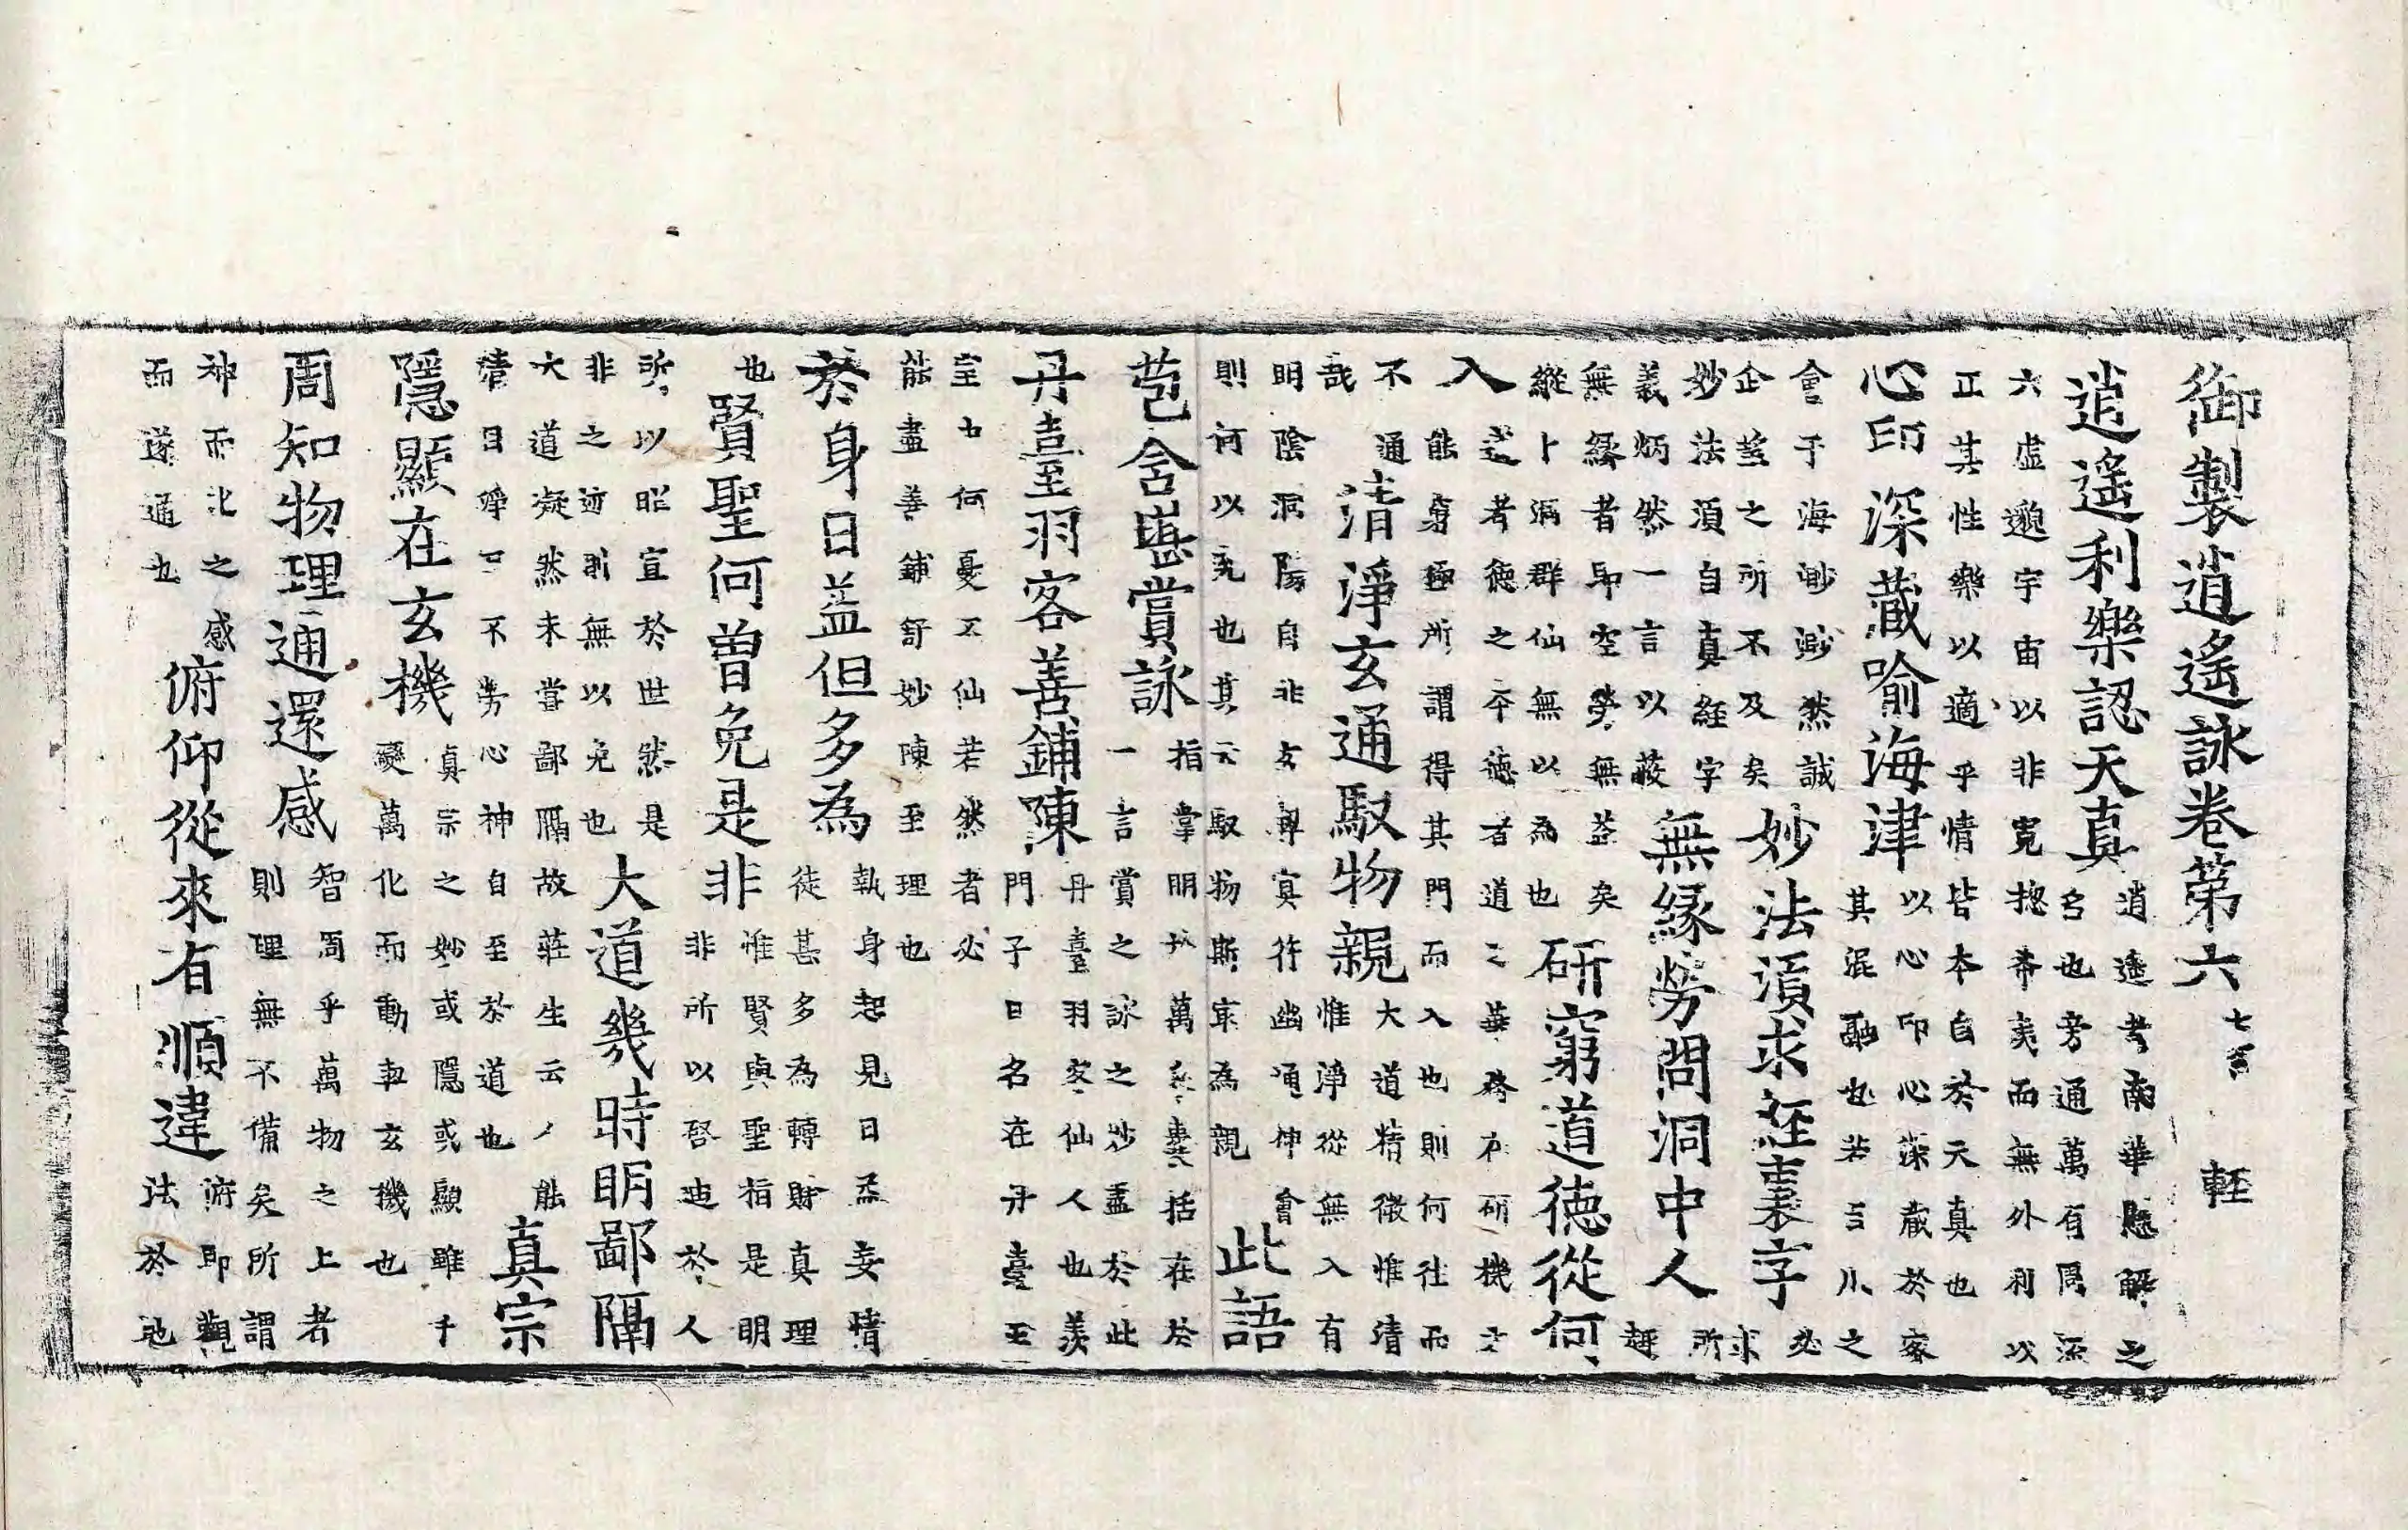 御製逍遙詠卷第六 七言 輊
逍遙利樂認天真
逍遙者南華懸解之
名也旁通萬有周流
六虛邈宇宙以非寬揔希夷而無外利以
正其性樂以適乎情皆本自於天真也
心印深藏喻海津
以心印心深藏於密
其混融也若百川之
會于海眇眇然誠
企之所不及矣
妙法湏求経裏字
必
求
妙法湏自真経字
義炳然一言以蔽
無緣勞問洞中人
所
無緣者即空勞無益矣
縱卜洞群仙無以為也
研窮道德從何
入
道者德之本德者道之華務在研機士
能窮極所謂得其門而入也則何往而
不通
哉
清淨玄通馭物親
大道精微惟清
惟淨從無入有
明陰洞陽自非友尋冥符幽通神會
則何以究也其云馭物斯寔為親
此語
苞含堪賞詠
指掌明於萬象囊括在於
一言賞之詠之妙盡於此
丹臺羽客善鋪陳
丹臺羽客仙人也羨
門子曰名在丹臺玉
室也何憂不仙若然者必
能盡善鋪舒妙陳至理也
於身日益但多為
執身起見日益妄情
徒甚多為轉財真理
也
賢聖何曾免是非
惟賢與聖指是明
非所以啓迪於人
所以昭宣於世然是
非之迹則無以免也
大道幾時明鄙隔
大道凝然未嘗鄙隔故莊生云人能
清目淨口不勞心神自至於道也
真宗
隱顯在玄機
真宗之妙或隱或顯雖千
變萬化而動動玄機也
周知物理通還感
智周乎萬物之上者
則理無不備矣所謂
神而化之感
而遂通也
俯仰從來有順違
俯即觀
法於地